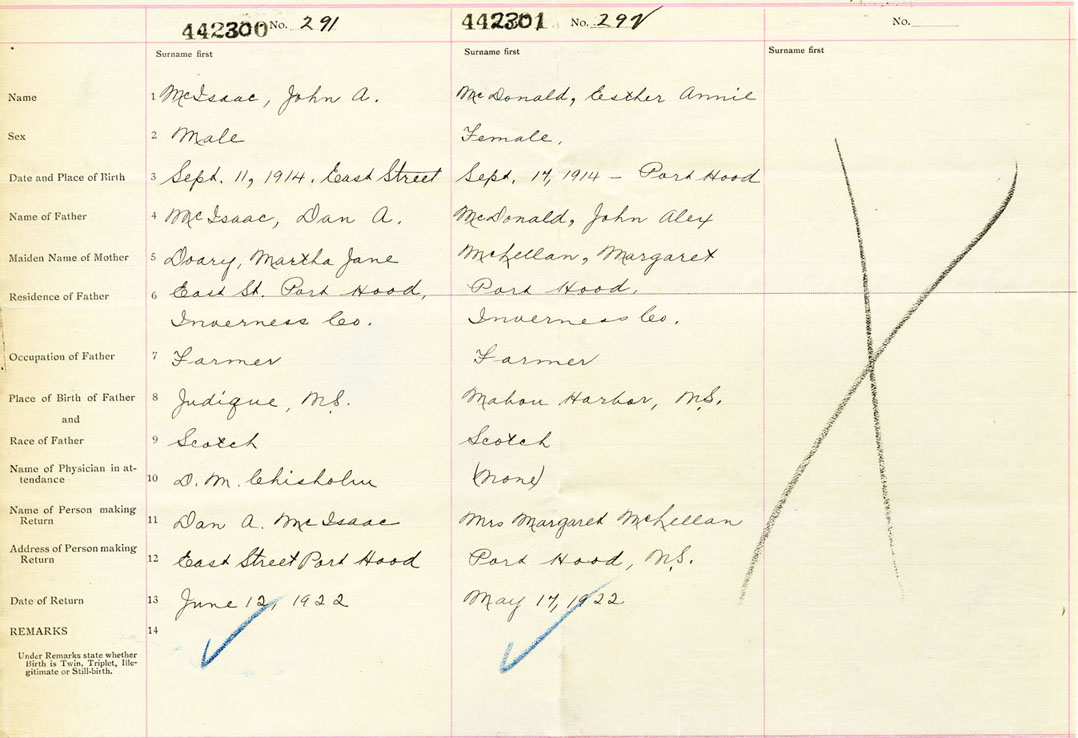 442300 No. 291
442301 No. 292
No.
Surname first
Surname first
Surname first
Name 1 McIsaac, John A. McDonald, Esther Annie
Sex 2 Male Female,
Date and Place of Birth 3 Sept. 11, 1914. East Street Sept. 17, 1914 – Port Hood
Name of Father 4 McIsaac, Dan A. McDonald, John Alex
Maiden Name of Mother 5 Doary, Martha Jane McLellan, Margaret
Residence of Father 6 East St. Port Hood, Port Hood,
Inverness Co. Inverness Co.
Occupation of Father 7 Farmer Farmer
Place of Birth of Father 8 Judique, N.S. Mabou Harbor, N.S.
and
Race of Father 9 Scotch Scotch
Name of Physician in at-
tendance 10 D. M. Chisholm (none)
Name of Person making
Return 11 Dan A. McIsaac Mrs Margaret McLellan
Address of Person making
Return 12 East Street Port Hood Port Hood, N.S.
Date of Return 13 June 12, 1922 May 17, 1922
REMARKS 14
Under Remarks state whether
Birth is Twin, Triplet, Ille-
gitimate or Still-birth.